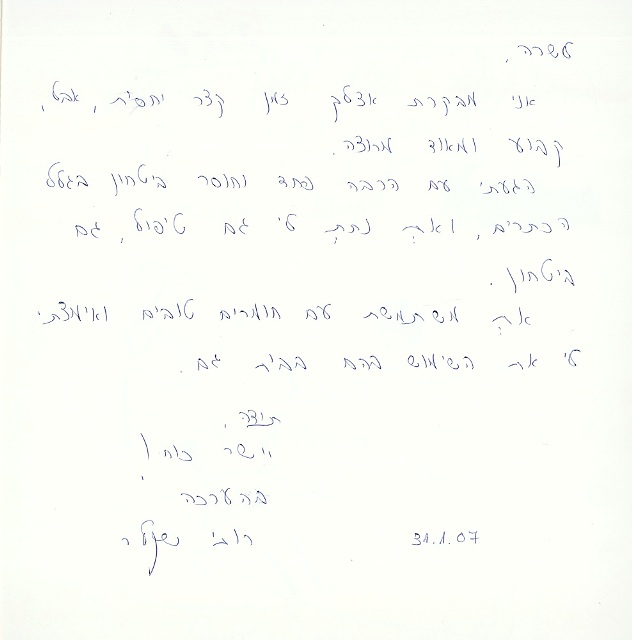 לשרה,
אני מבקרת אצלך זמן קצר יחסית, אבל,
קבוע ומאוד מרוצה.
הגעתי עם הרבה פחד וחוסר ביטחון בגלל
הכתרים, ואת נתת לי גם טיפול, גם
ביטחון.
את משתמשת עם חומרים טובים ואימצתי
לי את השימוש בהם בבית גם.
תודה,
יישר כוח!
בהערכה
רובי
31.1.07